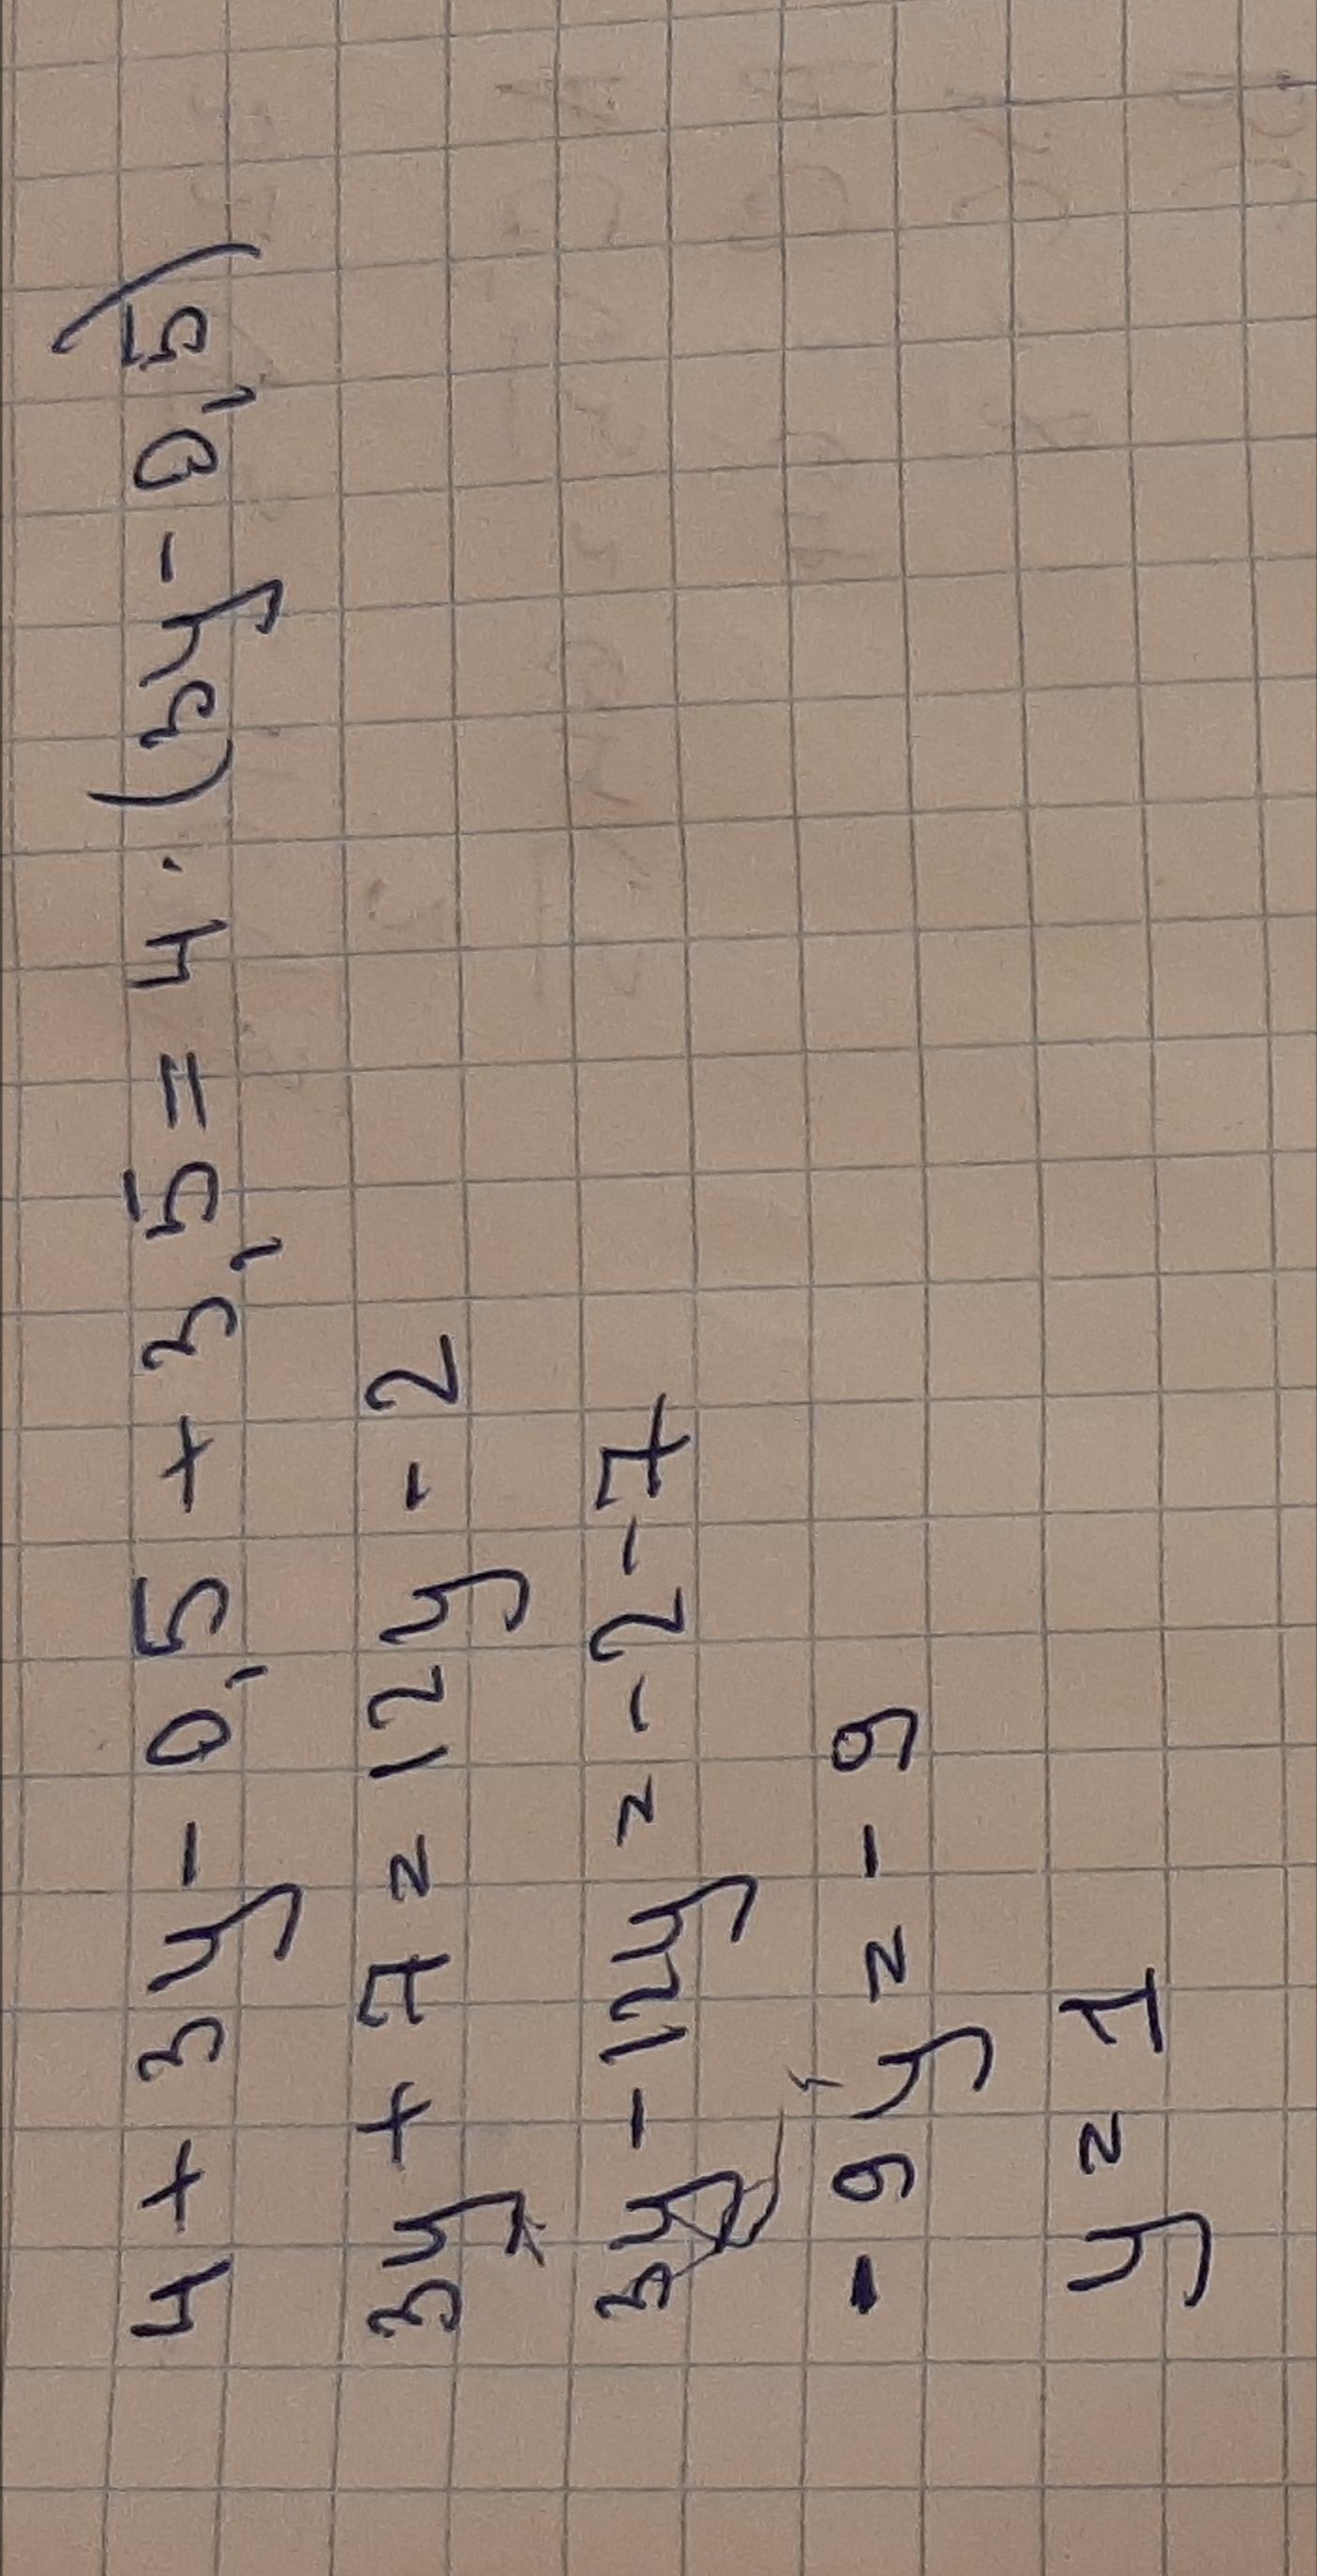 4 + 3y - 0,5 + 3,5 = 4 · (3y - 0,5)
3y + 7 = 12y - 2
3y - 12y = -2 - 7
-9y = -9
y = 1